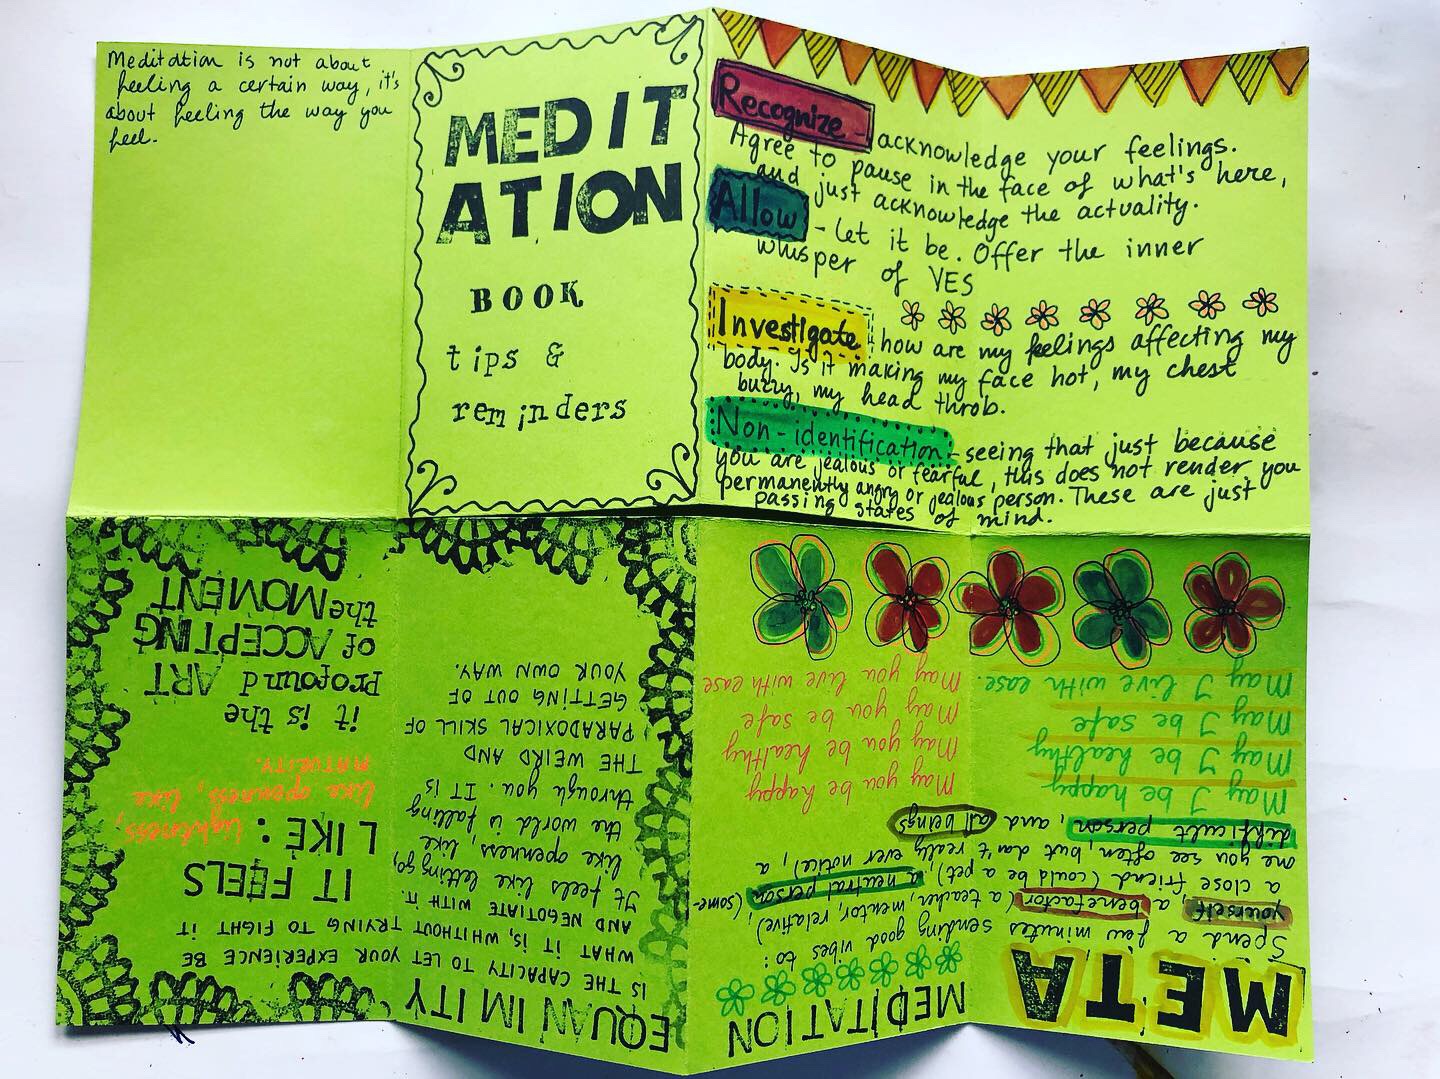 Meditation is not about
feeling a certain way, it's
about feeling the way you
feel.
MEDIT
ATION
BOOK
tips &
reminders
Recognize - acknowledge your feelings.
Agree to pause in the face of what's here,
and just acknowledge the actuality.
Allow - let it be. Offer the inner
whisper of YES
Investigate - how are my feelings affecting my
body. Is it making my face hot, my chest
buzzy, my head throb.
Non-identification - seeing that just because
you are jealous or fearful, this does not render you
permanently angry or jealous person. These are just
passing states of mind.
META
MEDITATION
Spend a few minutes sending good vibes to:
yourself, a benefactor (a teacher, mentor, relative),
a close friend (could be a pet), a neutral person (some-
one you see often, but don't really ever notice), a
difficult person, and, all beings
May I be happy
May I be healthy
May I be safe
May I live with ease.
May you be happy
May you be healthy
May you be safe
May you live with ease
EQUANIMITY
IS THE CAPACITY TO LET YOUR EXPERIENCE BE
WHAT IT IS, WHITHOUT TRYING TO FIGHT IT
AND NEGOTIATE WITH IT.
It feels like letting go,
like openness, like
the world is falling
through you. IT IS
THE WEIRD AND
PARADOXICAL SKILL OF
GETTING OUT OF
YOUR OWN WAY.
IT FEELS
LIKE: lightness,
like openness, like
MATURITY.
it is the
profound ART
of ACCEPTING
the MOMENT